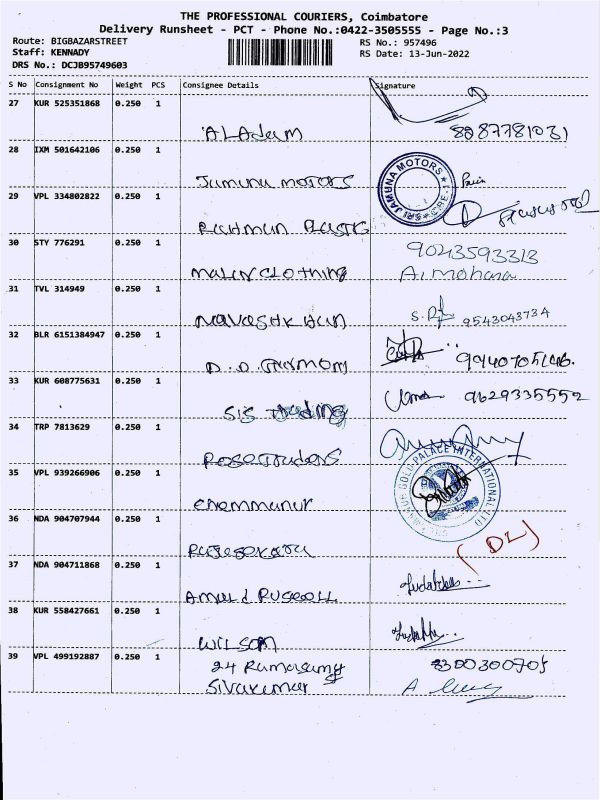 THE PROFESSIONAL COURIERS, Coimbatore
Delivery Runsheet - PCT - Phone No.:0422-3505555 - Page No.:3
Route: BIGBAZARSTREET
RS No.: 957496
Staff: KENNADY
RS Date: 13-Jun-2022
DRS No.: DCJB95749603
S No Consignment No Weight PCS Consignee Details Signature
27 KUR 525351868 0.250 1
8887781031
28 IXM 501642106 0.250 1
Jumunu motors
SRI JAMUNA MOTORS CBE
29 VPL 334802822 0.250 1
30 STY 776291 0.250 1
9043593313
clothing A. Mohana
31 TVL 314949 0.250 1
9543043734
32 BLR 6151384947 0.250 1
33 KUR 608775631 0.250 1
9629335552
SIS Trading
34 TRP 7813629 0.250 1
Rose Traders
35 VPL 939266906 0.250 1
GOLD PALACE INTERNATIONAL
chemmanur
36 NDA 904707944 0.250 1
(DL)
37 NDA 904711868 0.250 1
38 KUR 558427661 0.250 1
WILSON
39 VPL 499192887 0.250 1
24 Ramasamy 8300300705
Sivakumar